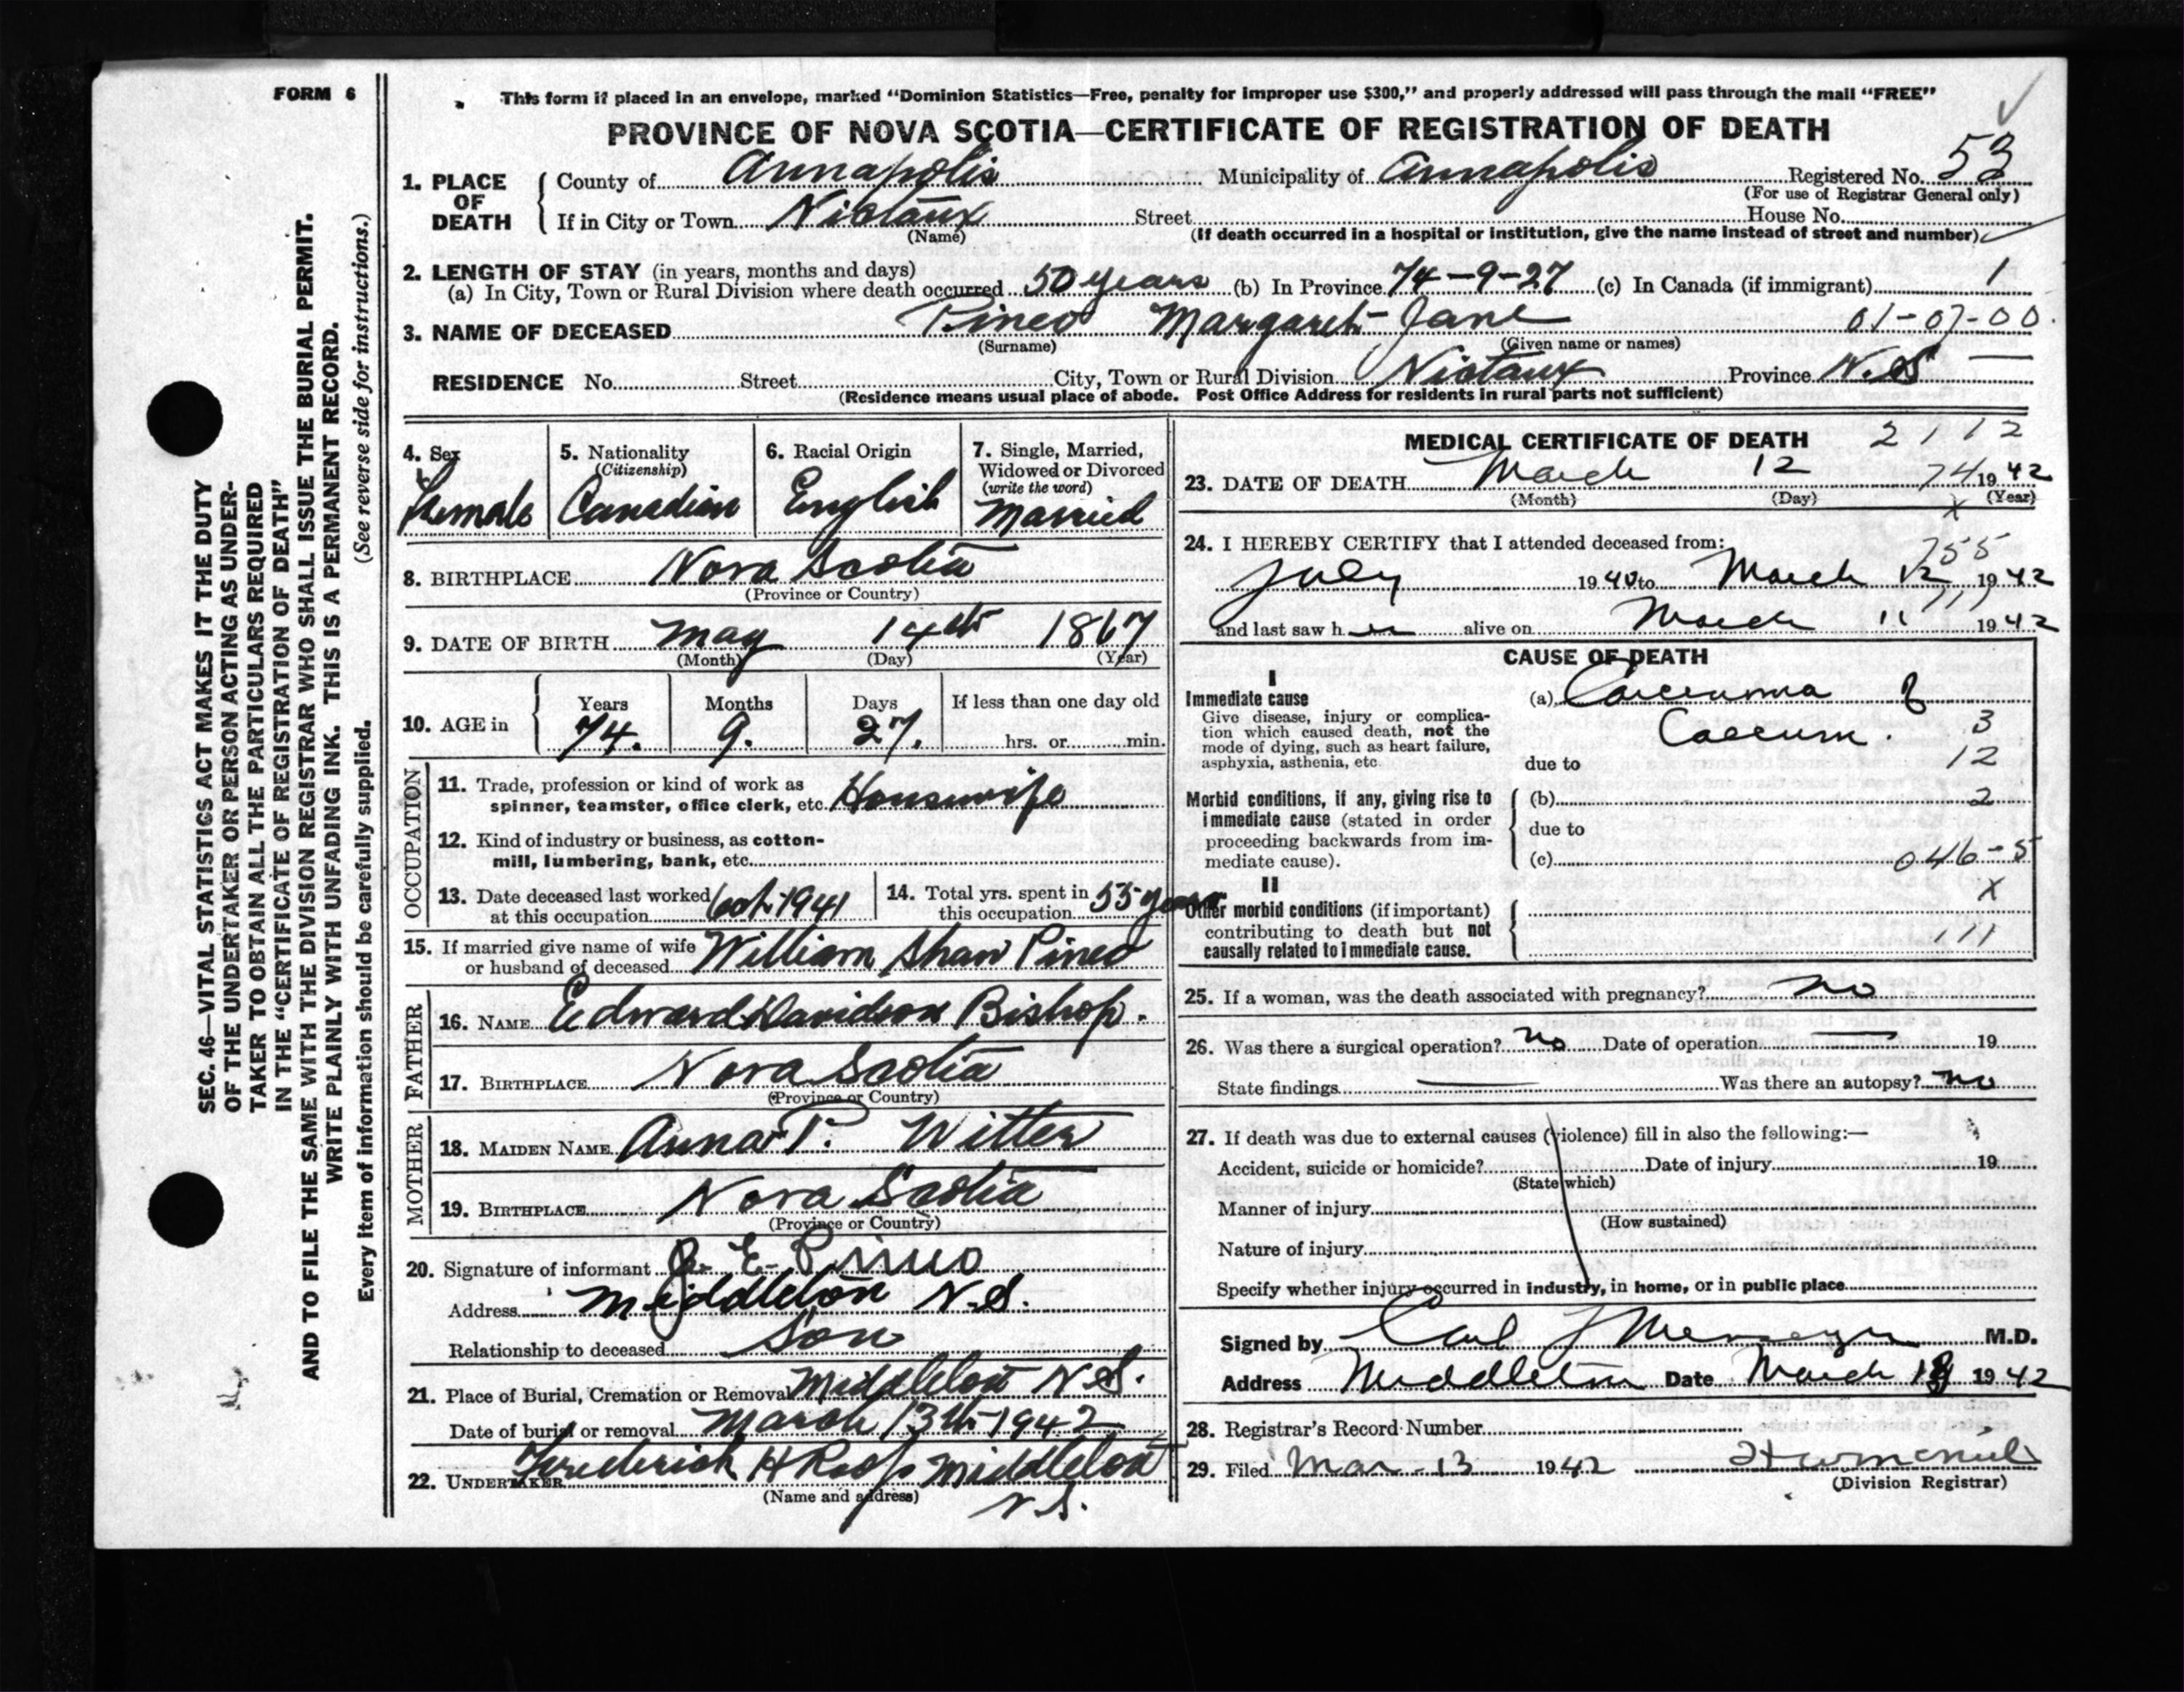 FORM 6
SEC. 46—VITAL STATISTICS ACT MAKES IT THE DUTY
OF THE UNDERTAKER OR PERSON ACTING AS UNDER-
TAKER TO OBTAIN ALL THE PARTICULARS REQUIRED
IN THE "CERTIFICATE OF REGISTRATION OF DEATH"
AND TO FILE THE SAME WITH THE DIVISION REGISTRAR WHO SHALL ISSUE THE BURIAL PERMIT.
WRITE PLAINLY WITH UNFADING INK. THIS IS A PERMANENT RECORD.
Every item of information should be carefully supplied. (See reverse side for instructions.)
This form if placed in an envelope, marked "Dominion Statistics—Free, penalty for improper use $300," and properly addressed will pass through the mail "FREE"
PROVINCE OF NOVA SCOTIA—CERTIFICATE OF REGISTRATION OF DEATH
1. PLACE OF DEATH
County of Annapolis Municipality of Annapolis Registered No. 53
(For use of Registrar General only)
If in City or Town Nictaux Street House No.
(Name) (If death occurred in a hospital or institution, give the name instead of street and number)
2. LENGTH OF STAY (in years, months and days)
(a) In City, Town or Rural Division where death occurred 50 years (b) In Province 74-9-27 (c) In Canada (if immigrant) 1
3. NAME OF DECEASED Pineo Margaret Jane 01-07-00
(Surname) (Given name or names)
RESIDENCE No. Street City, Town or Rural Division Nictaux Province N.S
(Residence means usual place of abode. Post Office Address for residents in rural parts not sufficient)
4. Sex
Female
5. Nationality
(Citizenship)
Canadian
6. Racial Origin
English
7. Single, Married,
Widowed or Divorced
(write the word)
Married
8. BIRTHPLACE Nova Scotia
(Province or Country)
9. DATE OF BIRTH May 14th 1867
(Month) (Day) (Year)
10. AGE in
Years Months Days If less than one day old
74. 9. 27. hrs. or min.
OCCUPATION
11. Trade, profession or kind of work as
spinner, teamster, office clerk, etc. Housewife
12. Kind of industry or business, as cotton-
mill, lumbering, bank, etc.
13. Date deceased last worked
at this occupation Oct. 1941
14. Total yrs. spent in
this occupation 55 years
15. If married give name of wife
or husband of deceased William Shaw Pineo
FATHER
16. NAME Edward Davidson Bishop.
17. BIRTHPLACE Nova Scotia
(Province or Country)
MOTHER
18. MAIDEN NAME Anna P. Witter
19. BIRTHPLACE Nova Scotia
(Province or Country)
20. Signature of informant J. E. Pineo
Address Middleton N.S.
Relationship to deceased Son
21. Place of Burial, Cremation or Removal Middleton N.S.
Date of burial or removal March 13th 1942
22. UNDERTAKER Frederick H Roop Middleton
(Name and address)
N.S.
MEDICAL CERTIFICATE OF DEATH 2112
23. DATE OF DEATH March 12 74 1942
(Month) (Day) (Year)
x
24. I HEREBY CERTIFY that I attended deceased from:
755
July 1940 to March 12 1942
111
and last saw h er alive on March 11 1942
CAUSE OF DEATH
I
Immediate cause (a) Carcinoma of
Give disease, injury or complica-
tion which caused death, not the
mode of dying, such as heart failure,
asphyxia, asthenia, etc
Caecum. 3
due to 12
Morbid conditions, if any, giving rise to
immediate cause (stated in order
proceeding backwards from im-
mediate cause).
(b) 2
due to
(c) 046-5
II
Other morbid conditions (if important)
contributing to death but not
causally related to immediate cause.
x
111
25. If a woman, was the death associated with pregnancy? no
26. Was there a surgical operation? no Date of operation — 19
State findings — Was there an autopsy? no
27. If death was due to external causes (violence) fill in also the following:—
Accident, suicide or homicide? Date of injury 19
(State which)
Manner of injury
(How sustained)
Nature of injury
Specify whether injury occurred in industry, in home, or in public place
Signed by Carl M.D.
Address Middleton Date March 1942
28. Registrar's Record Number
29. Filed Mar - 13 1942
(Division Registrar)